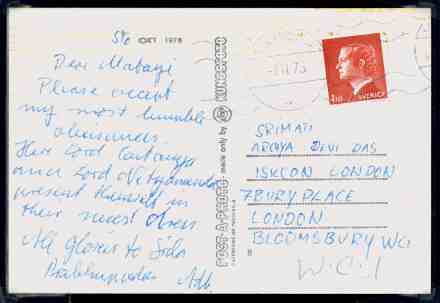 Sth OKT 1978
Dear Mataji
Please accept
my most humble
obeisances.
Here Lord Caitanya
and Lord Nityananda
present themself in
their sweet
All glories to Srila
Prabhupada
POST-A-PHOTO - made only by KUNGSFOTO
SVERIGE
SRIMATI
ARCYA DEVI DAS
ISKCON LONDON
7 BURY PLACE
LONDON
BLOOMSBURY WC1
W.C.1